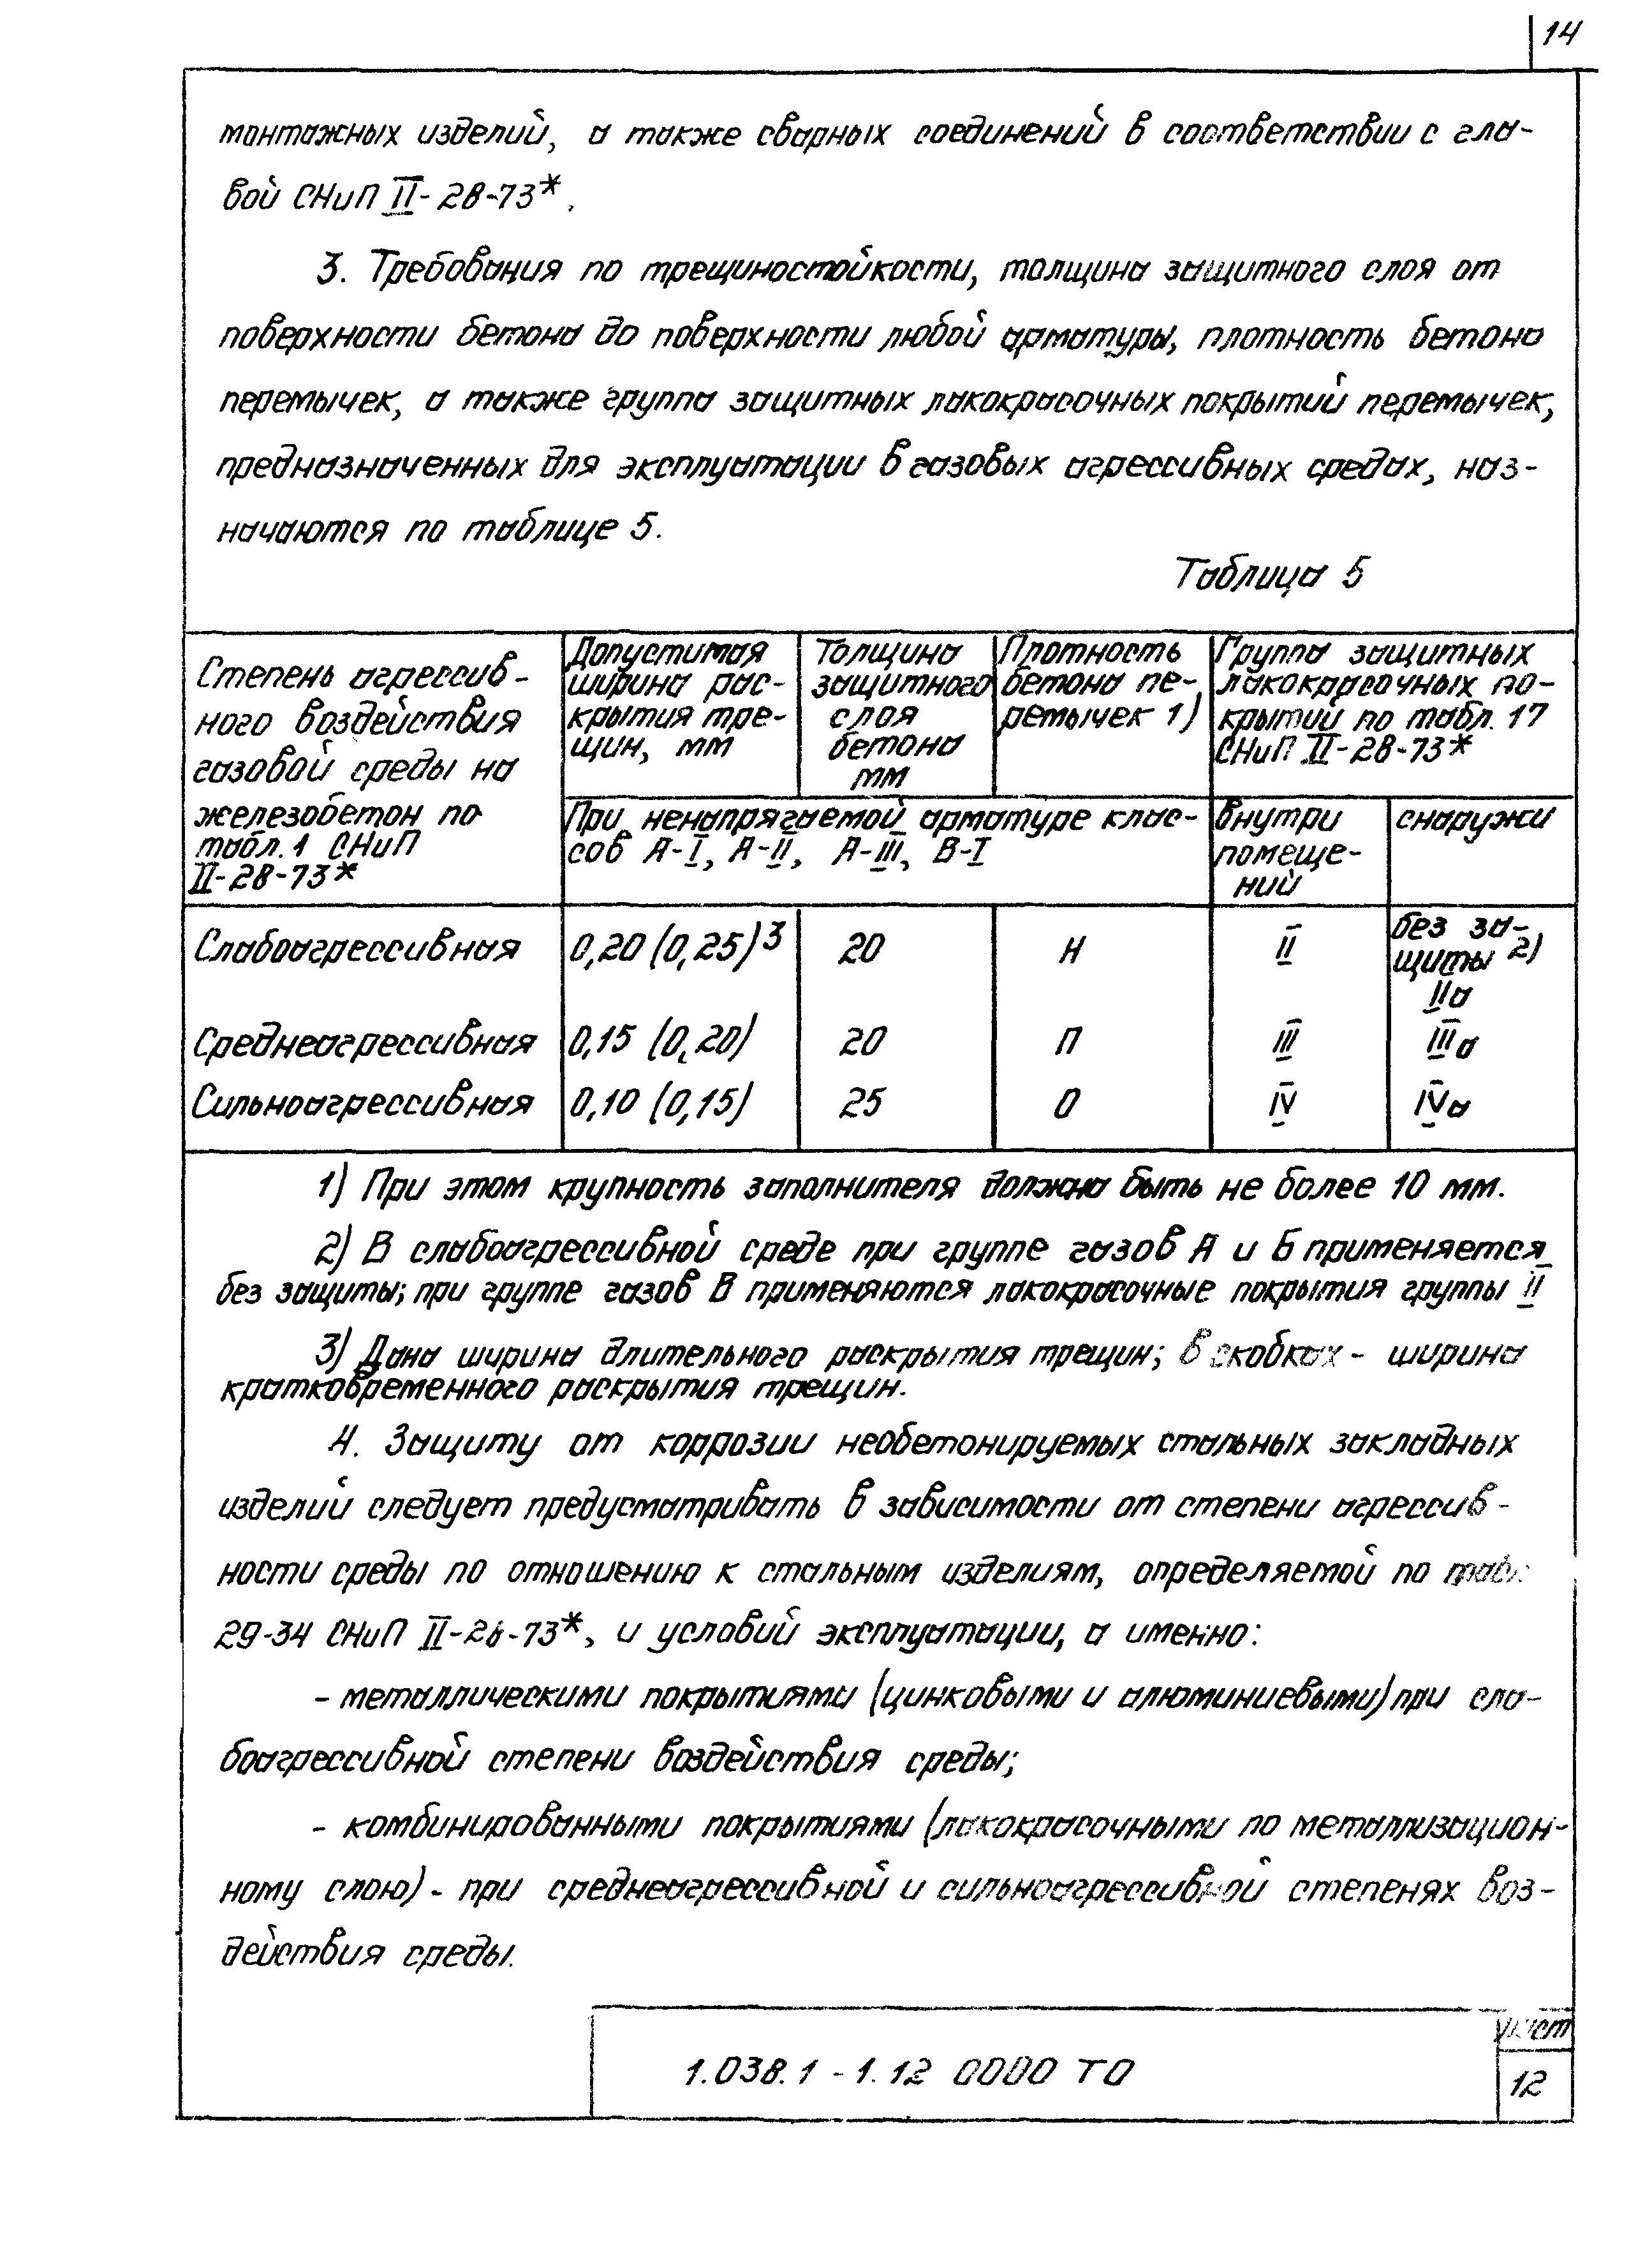 14
монтажных изделий, а также сварных соединений в соответствии с гла-
вой СНиП II-28-73*.
3. Требования по трещиностойкости, толщина защитного слоя от
поверхности бетона до поверхности любой арматуры, плотность бетона
перемычек, а также группа защитных лакокрасочных покрытий перемычек,
предназначенных для эксплуатации в газовых агрессивных средах, наз-
начаются по таблице 5.
Таблица 5
Степень агрессив-
ного воздействия
газовой среды на
железобетон по
табл. 1 СНиП
II-28-73*
Допустимая
ширина рас-
крытия тре-
щин, мм
Толщина
защитного
слоя
бетона
мм
Плотность
бетона пе-
ремычек 1)
Группа защитных
лакокрасочных по-
крытий по табл. 17
СНиП II-28-73*
При ненапрягаемой арматуре клас-
сов А-I, А-II, А-III, В-I
внутри
помеще-
ний
снаружи
Слабоагрессивная 0,20 (0,25)3 20 Н II без за-
щиты 2)
IIа
Среднеагрессивная 0,15 (0,20) 20 П III IIIа
Сильноагрессивная 0,10 (0,15) 25 О IV IVа
1) При этом крупность заполнителя должна быть не более 10 мм.
2) В слабоагрессивной среде при группе газов А и Б применяется
без защиты; при группе газов В применяются лакокрасочные покрытия группы II
3) Дана ширина длительного раскрытия трещин; в скобках - ширина
кратковременного раскрытия трещин.
4. Защиту от коррозии необетонируемых стальных закладных
изделий следует предусматривать в зависимости от степени агрессив-
ности среды по отношению к стальным изделиям, определяемой по табл.
29-34 СНиП II-28-73*, и условий эксплуатации, а именно:
- металлическими покрытиями (цинковыми и алюминиевыми) при сла-
боагрессивной степени воздействия среды;
- комбинированными покрытиями (лакокрасочными по металлизацион-
ному слою) - при среднеагрессивной и сильноагрессивной степенях воз-
действия среды.
1.038.1 - 1.12 0000 ТО
Лист
12